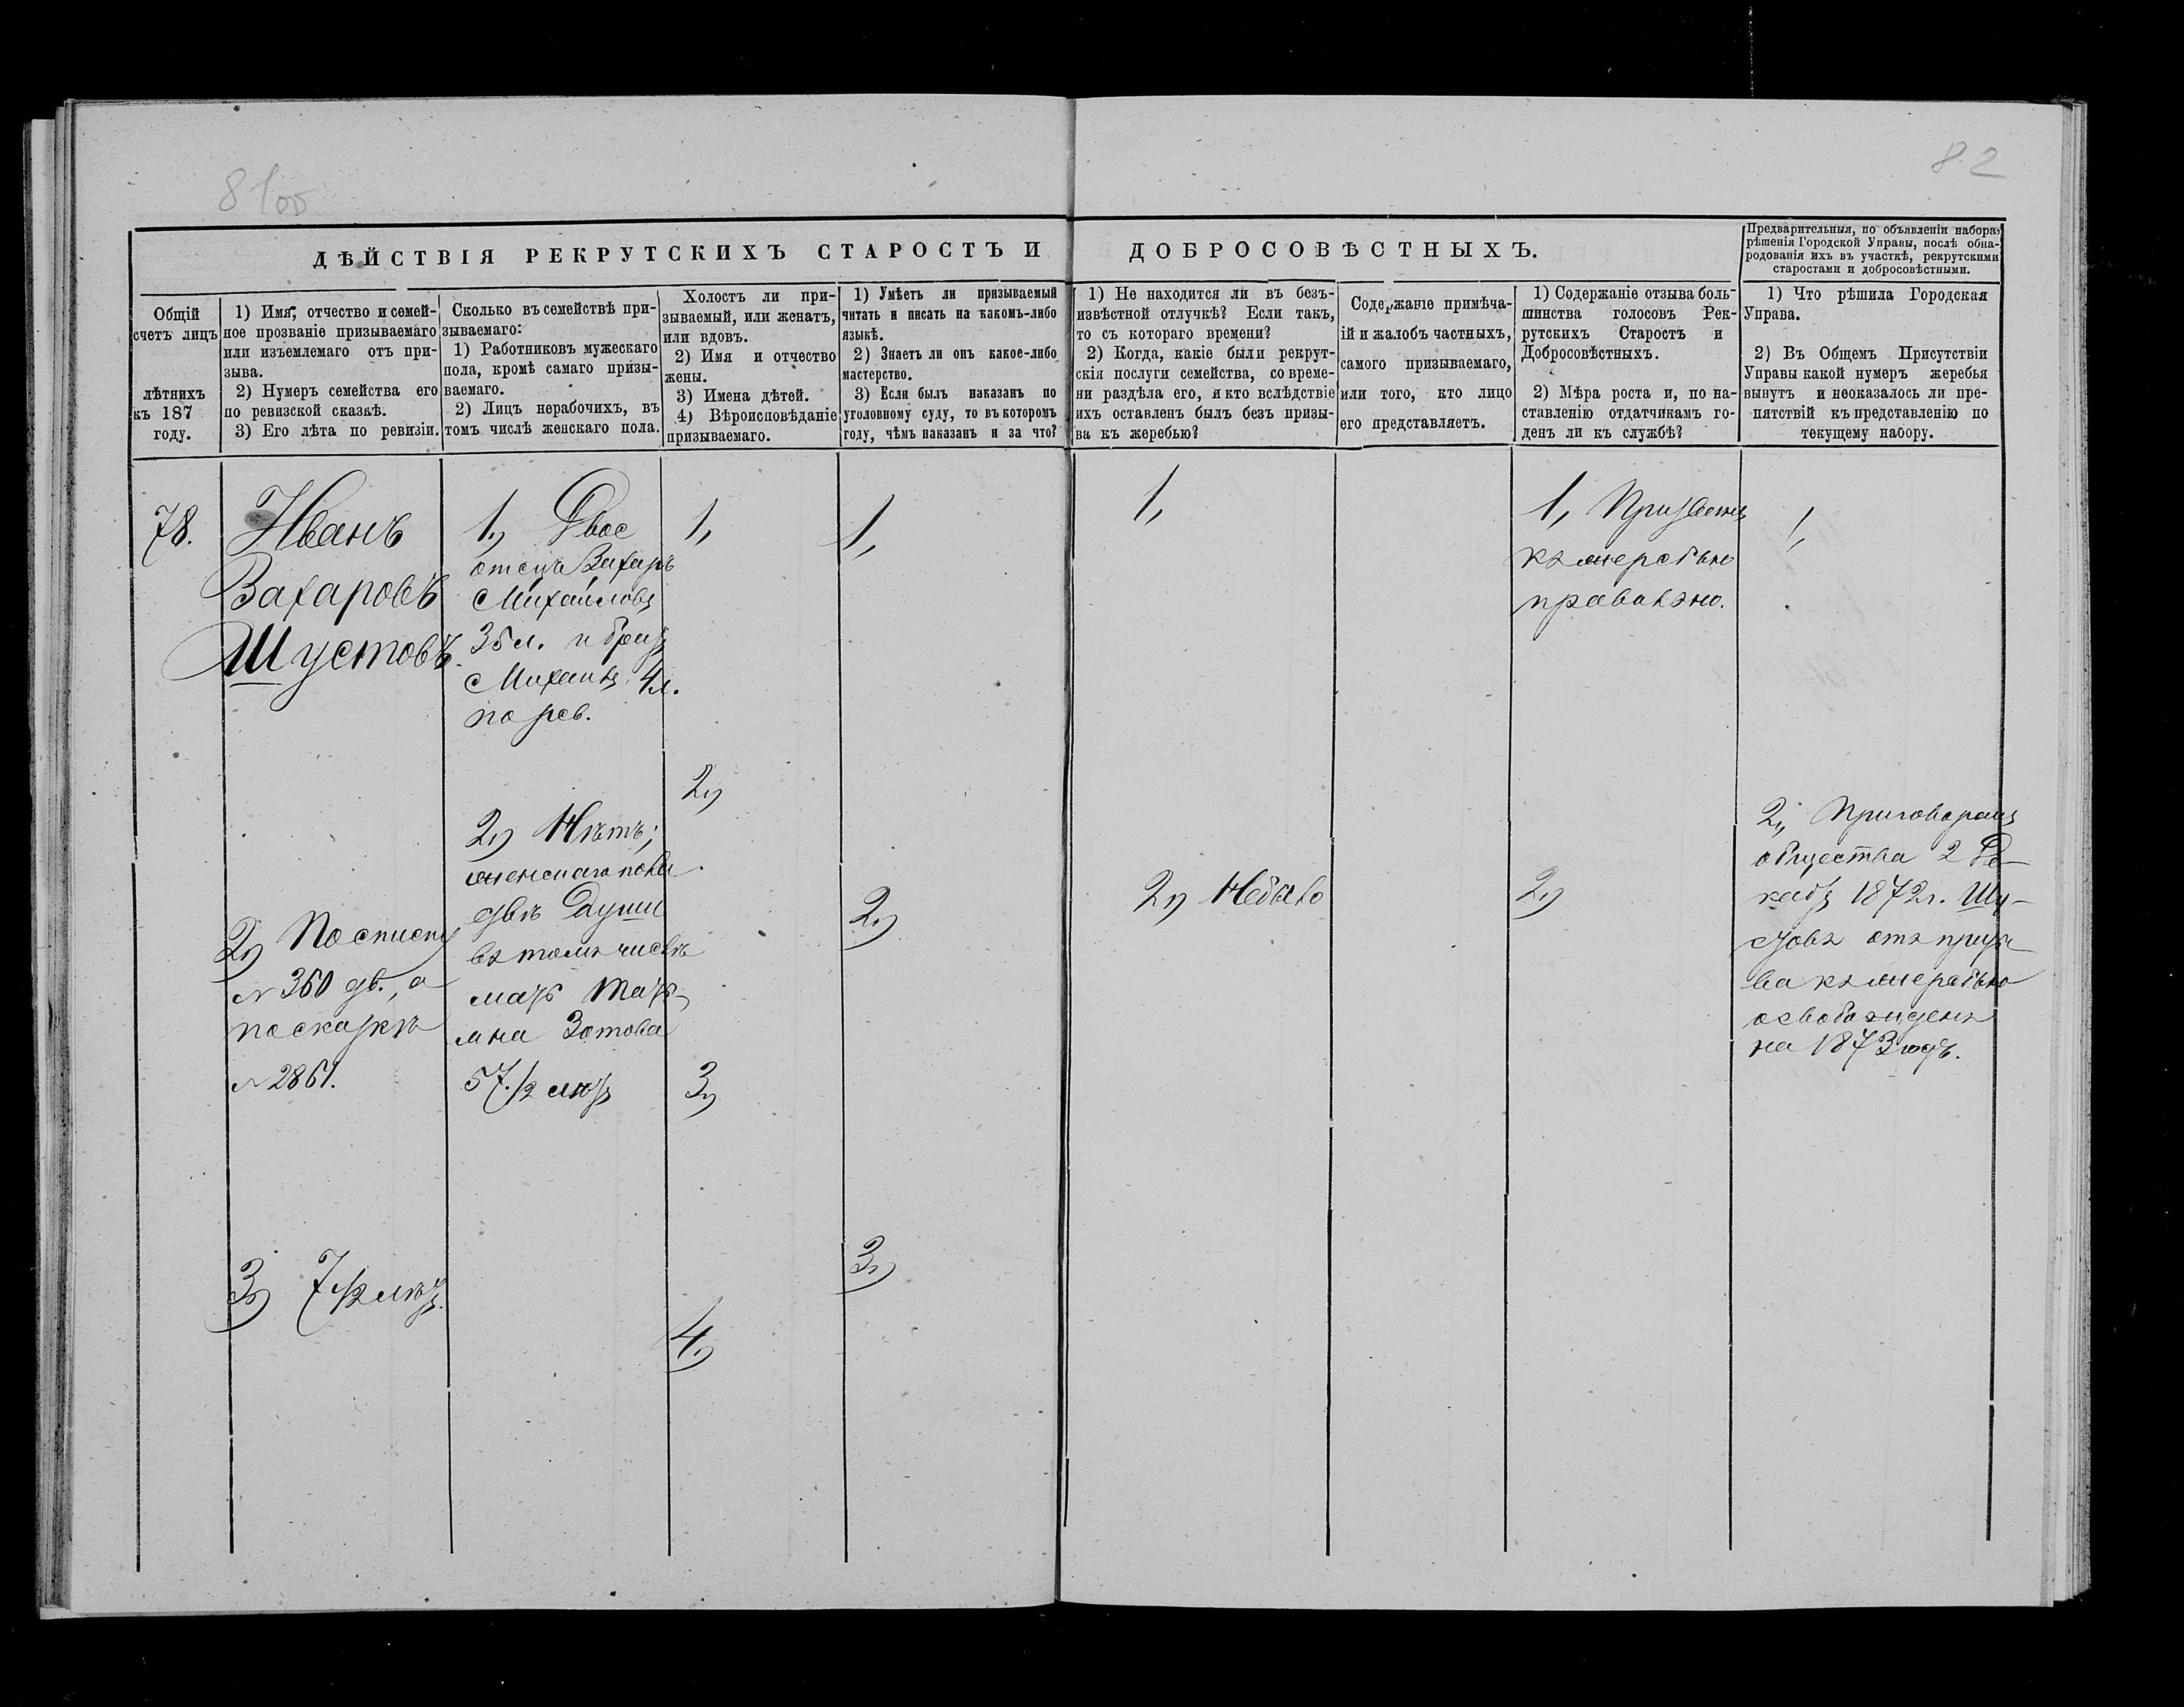 81об
82
ДѢЙСТВІЯ РЕКРУТСКИХЪ СТАРОСТЪ И ДОБРОСОВѢСТНЫХЪ.
Предварительныя, по объявленіи набора,
рѣшенія Городской Управы, послѣ обна-
родованія ихъ въ участкѣ, рекрутскими
старостами и добросовѣстными.
Общій
счетъ лицъ
лѣтнихъ
къ 187
году.
1) Имя, отчество и семей-
ное прозваніе призываемаго
или изъемлемаго отъ при-
зыва.
2) Нумеръ семейства его
по ревизской сказкѣ.
3) Его лѣта по ревизіи.
Сколько въ семействѣ при-
зываемаго:
1) Работниковъ мужескаго
пола, кромѣ самаго призы-
ваемаго.
2) Лицъ нерабочихъ, въ
томъ числѣ женскаго пола.
Холостъ ли при-
зываемый, или женатъ,
или вдовъ.
2) Имя и отчество
жены.
3) Имена дѣтей.
4) Вѣроисповѣданіе
призываемаго.
1) Умѣетъ ли призываемый
читать и писать на какомъ-либо
языкѣ.
2) Знаетъ ли онъ какое-либо
мастерство.
3) Если былъ наказанъ по
уголовному суду, то въ которомъ
году, чѣмъ наказанъ и за что?
1) Не находится ли въ безъ-
извѣстной отлучкѣ? Если такъ,
то съ котораго времени?
2) Когда, какіе были рекрут-
скія послуги семейства, со време-
ни раздѣла его, и кто вслѣдствіе
ихъ оставленъ былъ безъ призы-
ва къ жеребью?
Содержаніе примѣча-
ній и жалобъ частныхъ,
самого призываемаго,
или того, кто лицо
его представляетъ.
1) Содержаніе отзыва боль-
шинства голосовъ Рек-
рутскихъ Старостъ и
Добросовѣстныхъ.
2) Мѣра роста и, по на-
ставленію отдатчикамъ го-
денъ ли къ службѣ?
1) Что рѣшила Городская
Управа.
2) Въ Общемъ Присутствіи
Управы какой нумеръ жеребья
вынутъ и неоказалось ли пре-
пятствій къ представленію по
текущему набору.
78.
Иванъ
Захаровъ
Шустовъ
2) По списку
№ 360 дв., а
по сказкѣ
№ 2861.
3) 7 1/2 лѣтъ.
1) Двое
отецъ Захаръ
Михайловъ
35 л. и братъ
Михаилъ 4 л.
по рев.
2) Нѣтъ;
женскаго пола
двѣ души
въ томъ числѣ
мать
Зотова
57 1/2 лѣтъ
1,
2)
3)
4)
1,
2)
3)
1,
2) Небыло
1, Призвать
къ жеребью
правильно.
2)
1,
2, Приговоромъ
общества 2 Де-
кабр 1872 г. Шу-
стовъ отъ призы-
ва къ жеребью
освобожденъ
на 1873 годъ.